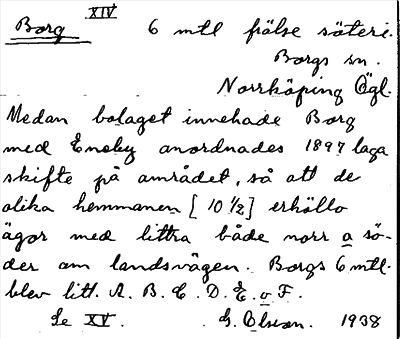 Borg XIV 6 mtl frälse säteri.
Borgs sn.
Norrköping Ögl.
Medan bolaget innehade Borg
med Eneby anordnades 1897 laga
skifte på området, så att de
olika hemmanen [10 1/2] erhöllo
ägor med littra både norr o sö-
der om landsvägen. Borgs 6 mtl.
blev litt. A. B. C. D. E. o F.
Se XV. G. Olsson. 1938